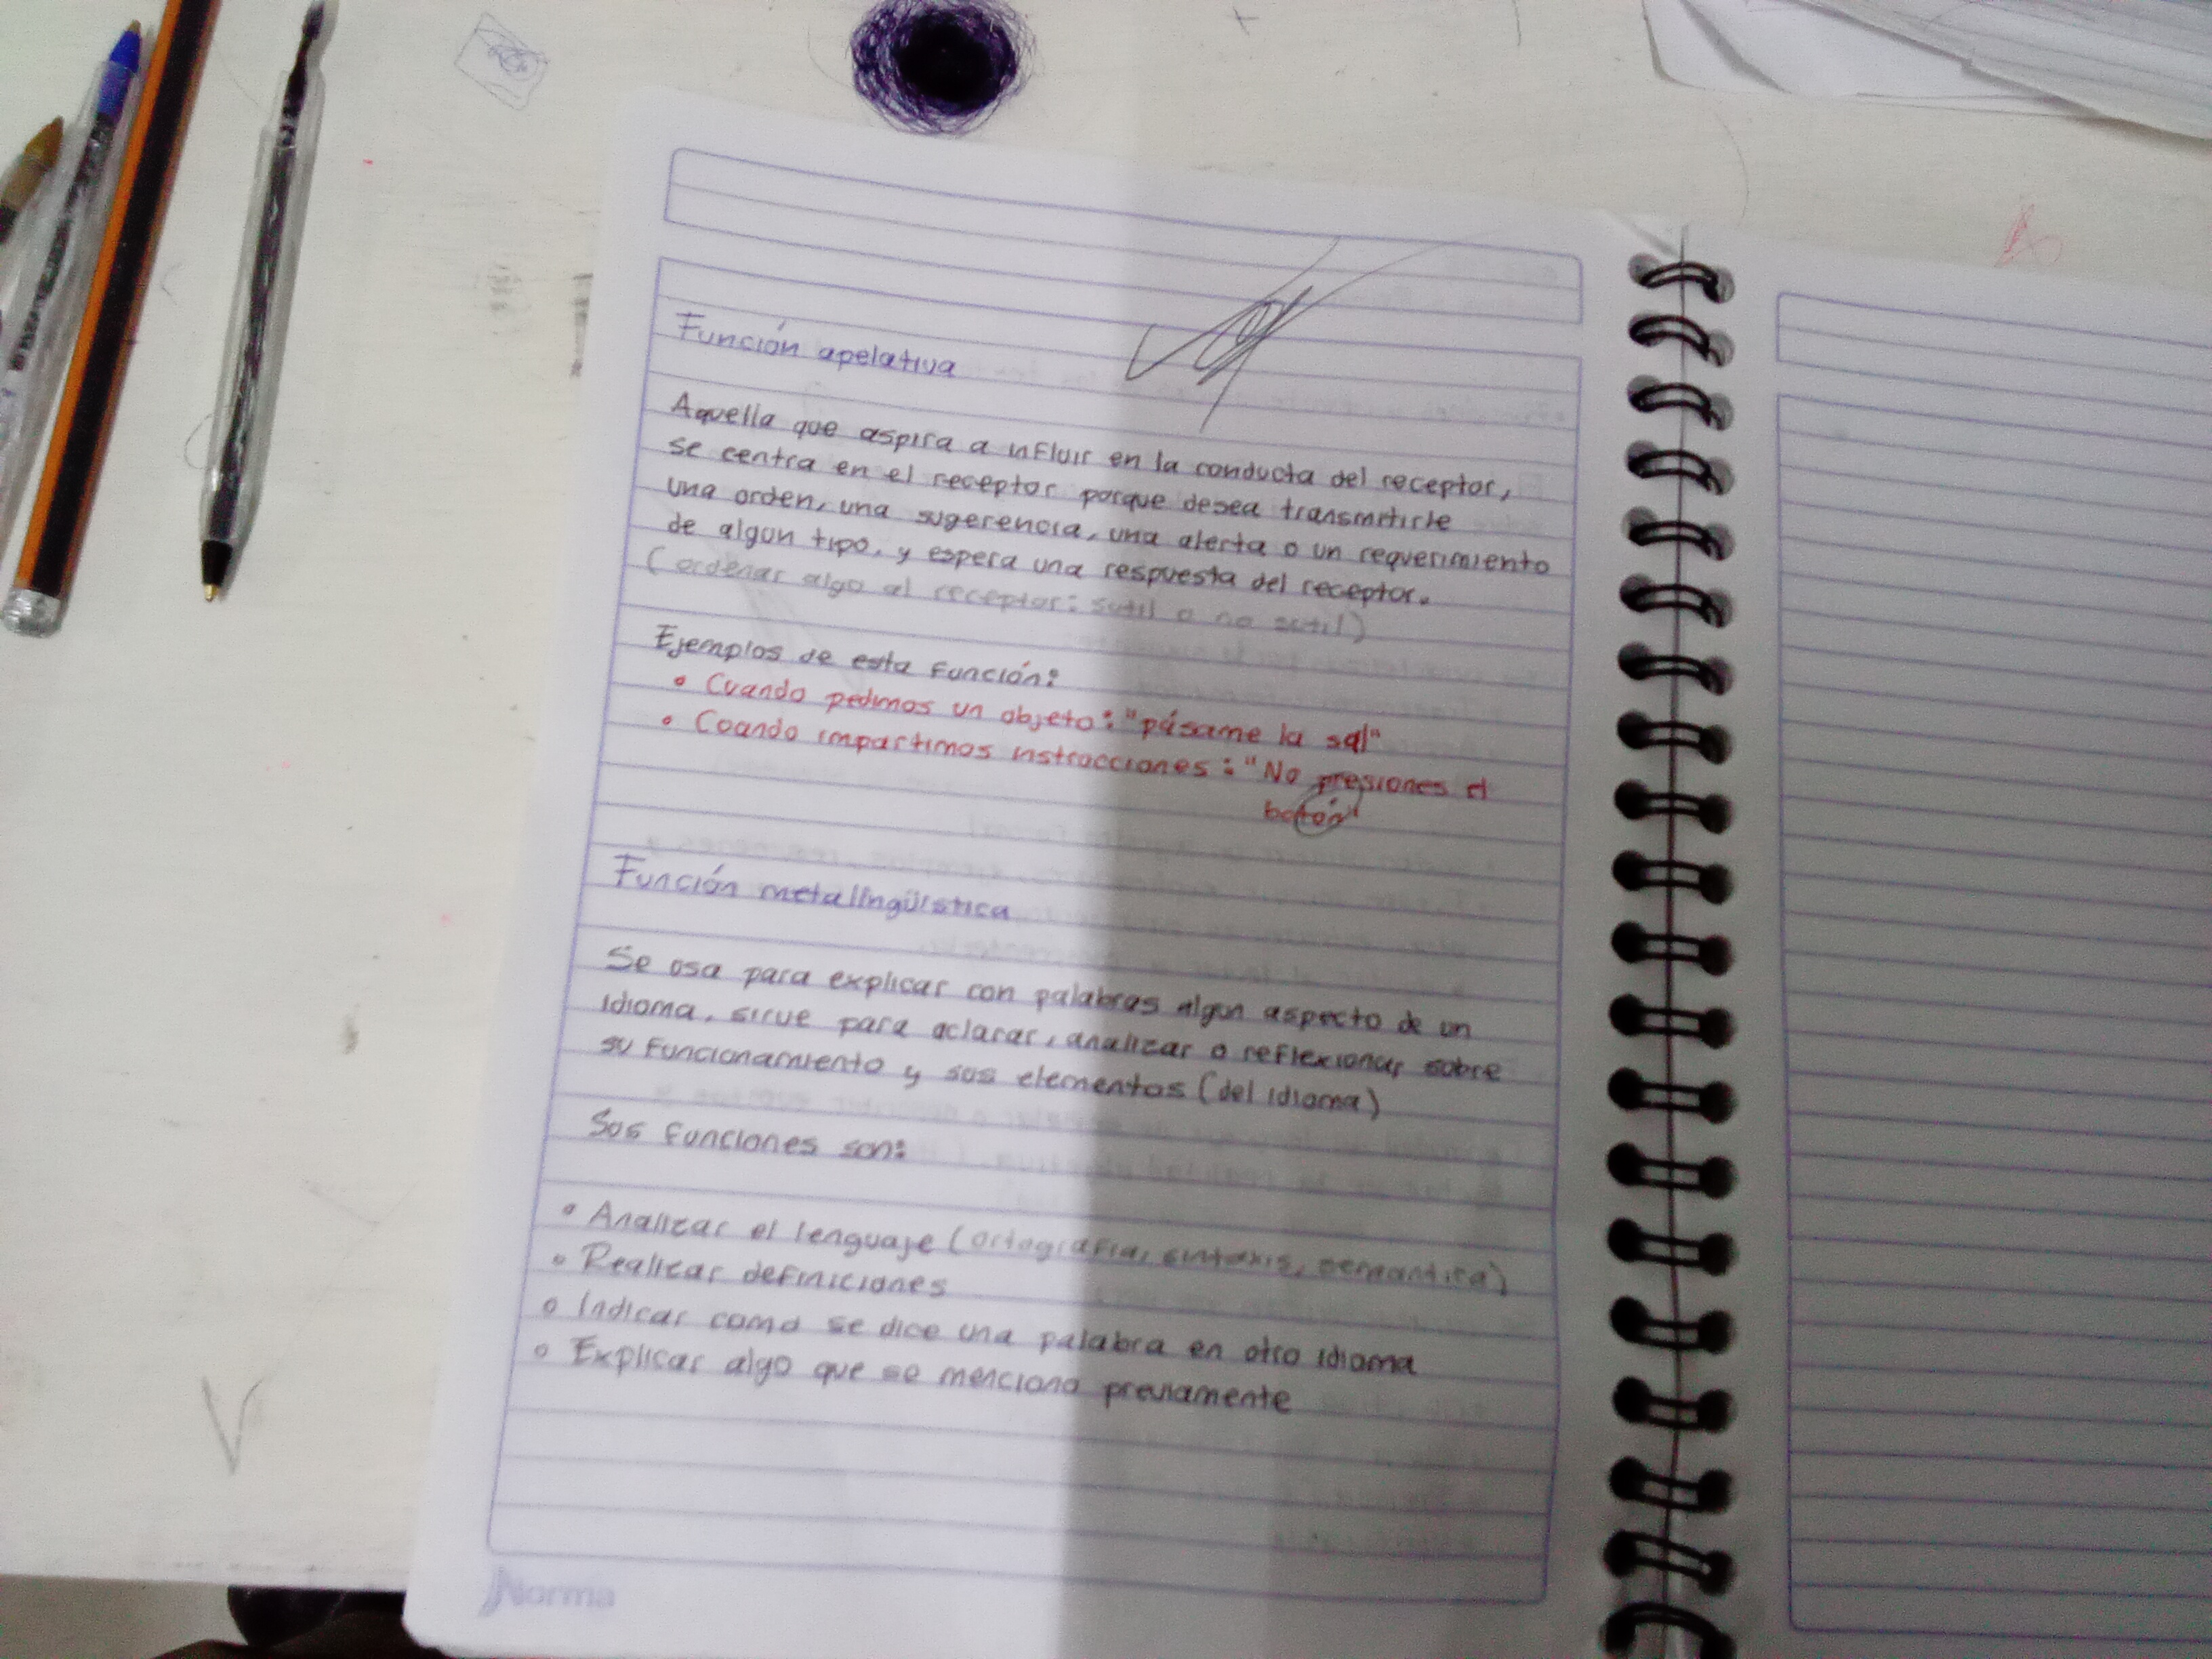 Función apelativa
Aquella que aspira a influir en la conducta del receptor,
se centra en el receptor porque desea transmitirle
una orden, una sugerencia, una alerta o un requerimiento
de algun tipo, y espera una respuesta del receptor.
(ordenar algo al receptor: sutil o no sutil)
Ejemplos de esta función:
• Cuando pedimos un objeto: "pásame la sal"
• Cuando impartimos instrucciones: "No presiones el
botón"
Función metalingüística
Se usa para explicar con palabras algun aspecto de un
idioma, sirve para aclarar, analizar o reflexionar sobre
su funcionamiento y sus elementos (del idioma)
Sus funciones son:
• Analizar el lenguaje (ortografía, sintaxis, semantica)
• Realizar definiciones
• Indicar como se dice una palabra en otro idioma
• Explicar algo que se menciono previamente
Norma